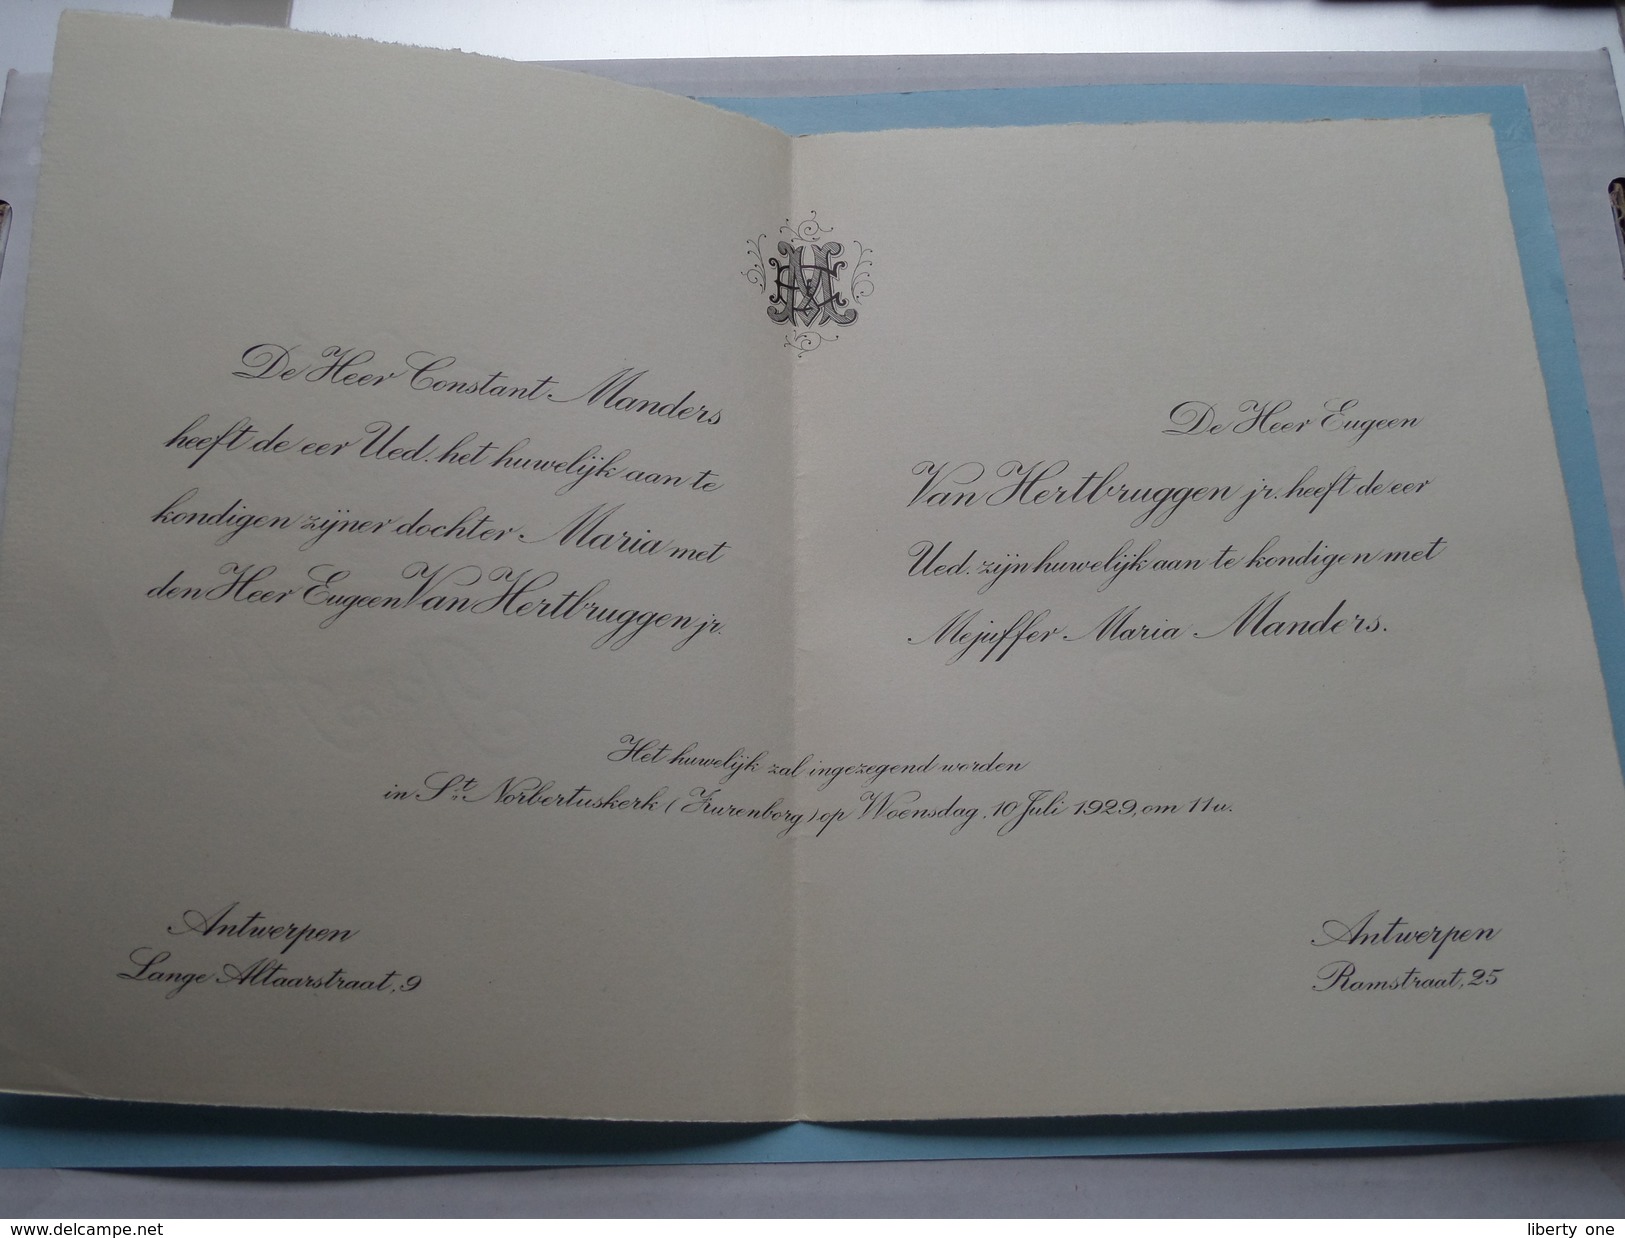 De Heer Constant Manders
heeft de eer Ued. het huwelijk aan te
kondigen zijner dochter Maria met
den Heer Eugeen Van Hertbruggen jr.
De Heer Eugeen
Van Hertbruggen jr. heeft de eer
Ued. zijn huwelijk aan te kondigen met
Mejuffer Maria Manders.
Het huwelijk zal ingezegend worden
in St. Norbertuskerk (Zurenborg) op Woensdag, 10 Juli 1929, om 11 u.
Antwerpen
Lange Altaarstraat, 9
Antwerpen
Ramstraat, 25
www.delcampe.net
liberty one